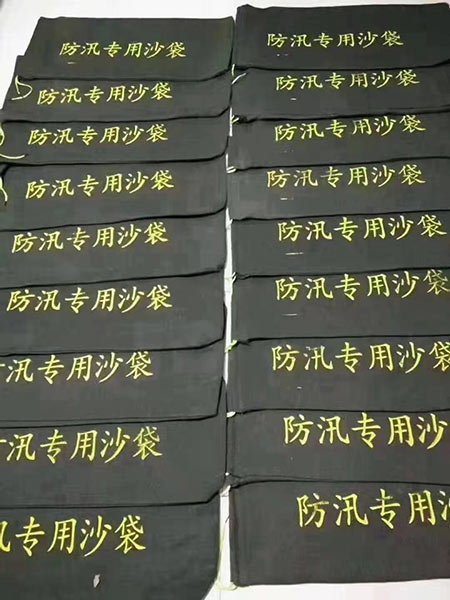 防汛专用沙袋
防汛专用沙袋
防汛专用沙袋
防汛专用沙袋
防汛专用沙袋
防汛专用沙袋
汛专用沙袋
防汛专用沙袋
汛专用沙袋
防汛专用沙袋
防汛专用沙袋
防汛专用沙袋
防汛专用沙袋
防汛专用沙袋
防汛专用沙袋
防汛专用沙袋
防汛专用沙袋
防汛专用沙